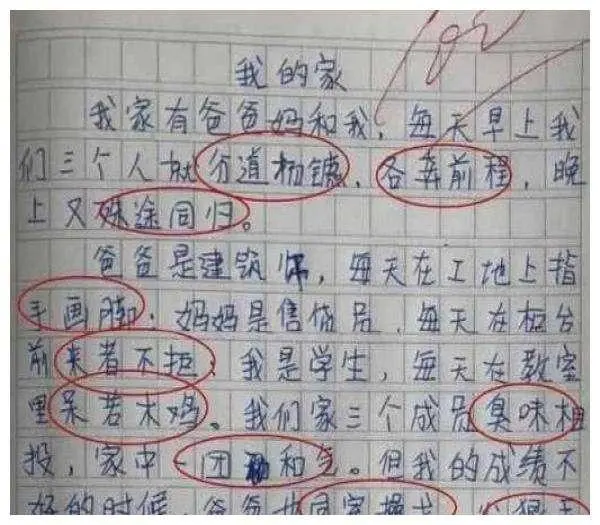 我的家
我家有爸爸妈和我，每天早上我
们三个人就分道杨镳，各奔前程，晚
上又殊途同归。
爸爸是建筑师，每天在工地上指
手画脚，妈妈是售货员，每天在柜台
前来者不拒，我是学生，每天在教室
里呆若木鸡。我们家三个成员臭味相
投，家中一团和气。但我的成绩不
好的时候，爸爸也同室操戈